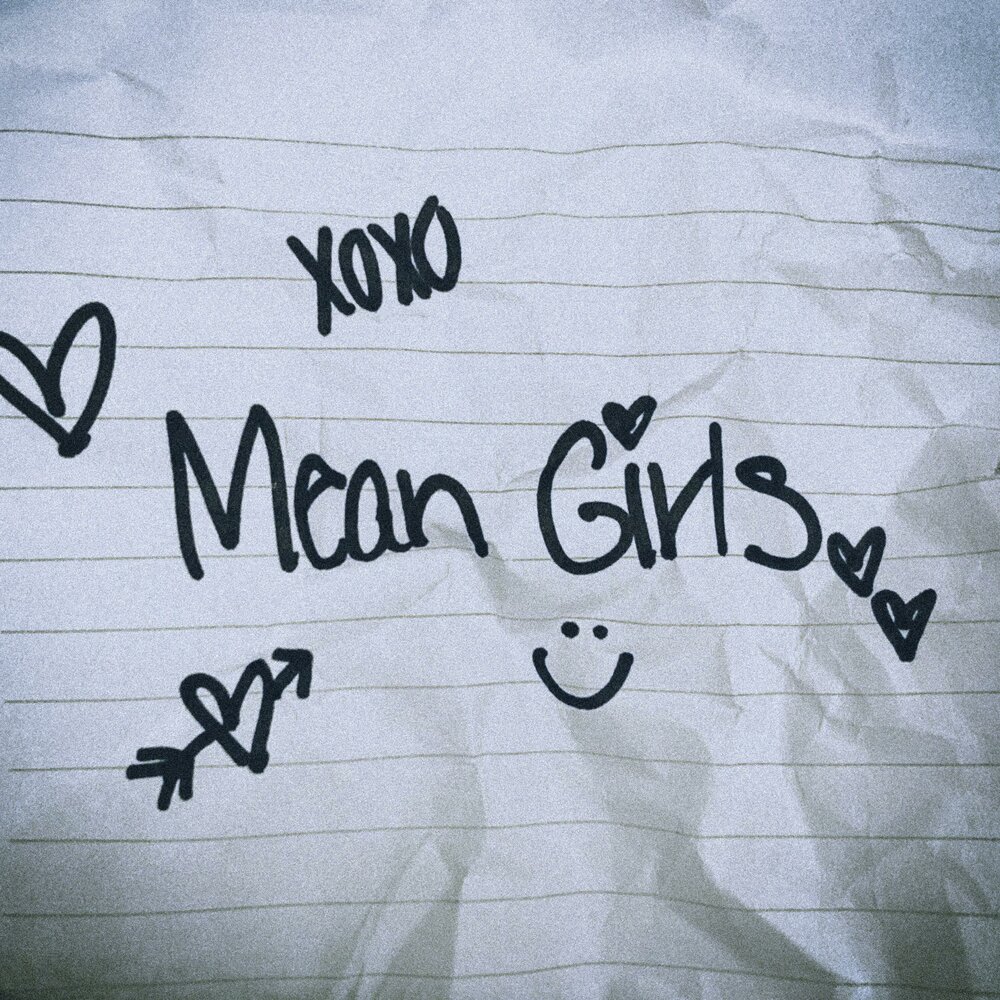 XOXO
Mean Girls